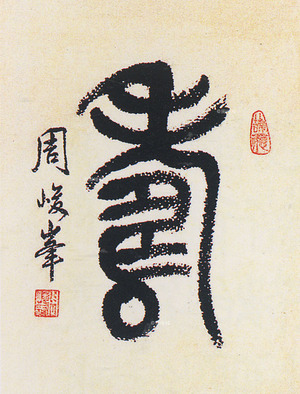 壽
周峻峯